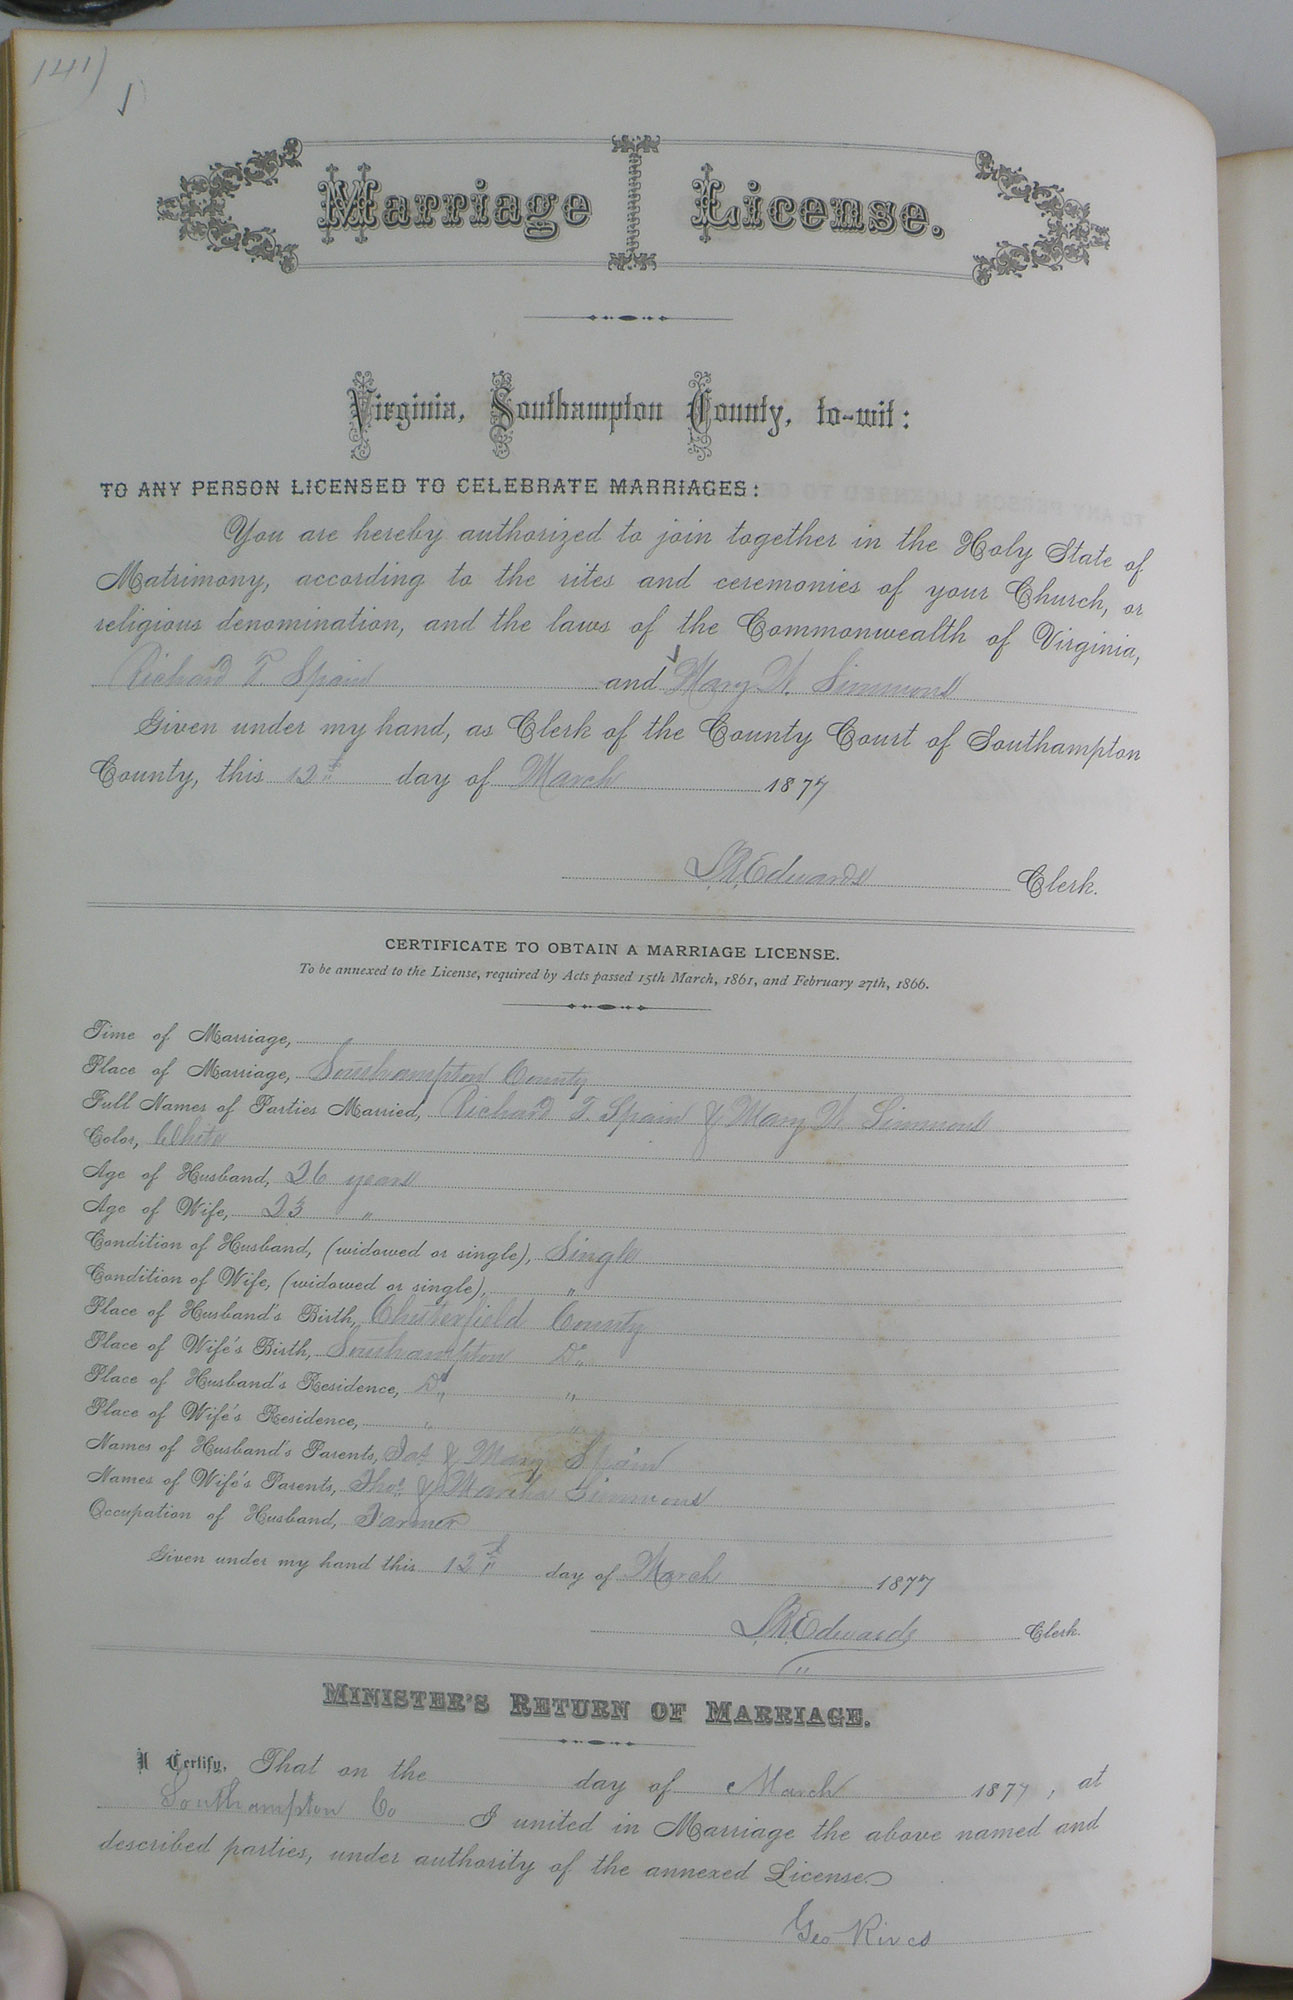 141)
Marriage License.
Virginia, Southampton County, to-wit:
TO ANY PERSON LICENSED TO CELEBRATE MARRIAGES:
You are hereby authorized to join together in the Holy State of
Matrimony, according to the rites and ceremonies of your Church, or
religious denomination, and the laws of the Commonwealth of Virginia,
Richard T. Spain and Mary W. Simmons
Given under my hand, as Clerk of the County Court of Southampton
County, this 12th day of March 1877
L.R. Edwards Clerk.
CERTIFICATE TO OBTAIN A MARRIAGE LICENSE.
To be annexed to the License, required by Acts passed 15th March, 1861, and February 27th, 1866.
Time of Marriage,
Place of Marriage, Southampton County
Full Names of Parties Married, Richard T. Spain & Mary W. Simmons
Color, White
Age of Husband, 26 years
Age of Wife, 23 "
Condition of Husband, (widowed or single), Single
Condition of Wife, (widowed or single), "
Place of Husband's Birth, Chesterfield County
Place of Wife's Birth, Southampton Do
Place of Husband's Residence, Do "
Place of Wife's Residence, " "
Names of Husband's Parents, Jas & Mary Spain
Names of Wife's Parents, Thos & Martha Simmons
Occupation of Husband, Farmer
Given under my hand this 12th day of March 1877
L.R. Edwards Clerk.
MINISTER'S RETURN OF MARRIAGE.
I Certify, That on the day of March 1877, at
Southampton Co I united in Marriage the above named and
described parties, under authority of the annexed License
Geo Rives